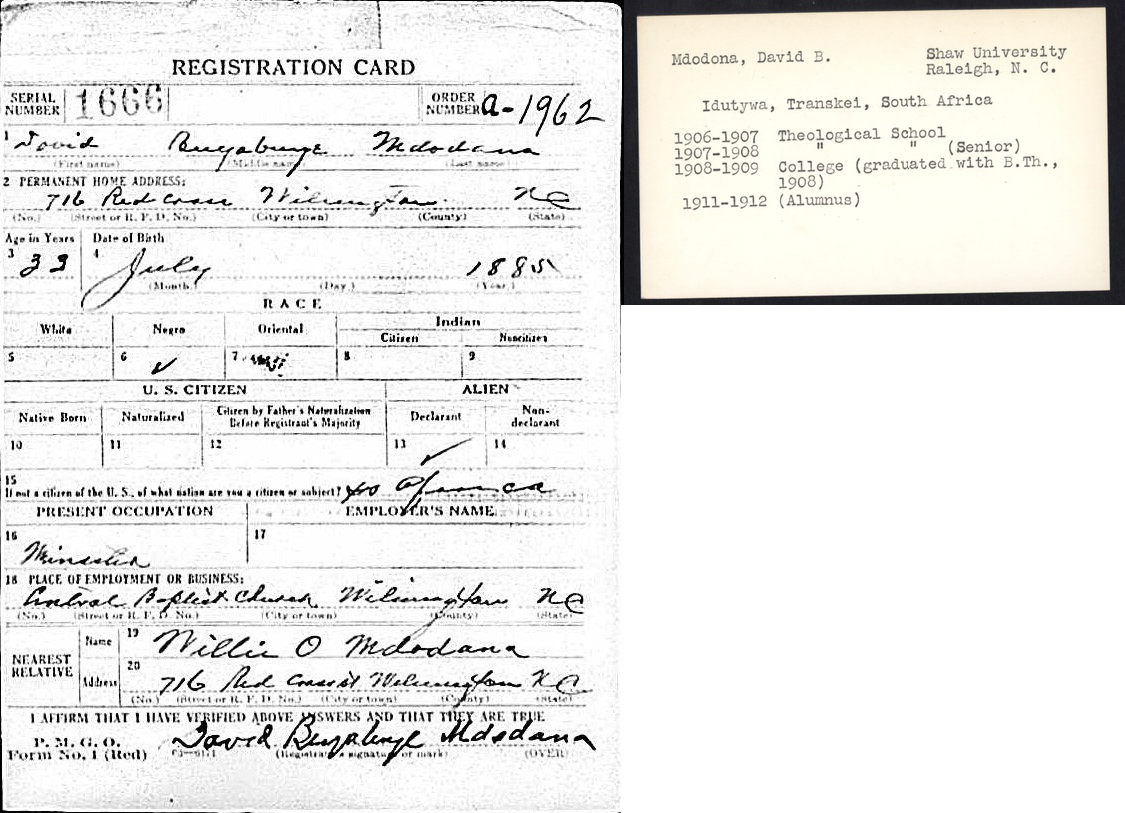 REGISTRATION CARD
SERIAL NUMBER 1666 ORDER NUMBER a-1962
1 David Buyabuye Mdodana
(First name) (Middle name) (Last name)
2 PERMANENT HOME ADDRESS:
716 Red Cross Wilmington NC
(No.) (Street or R. F. D. No.) (City or town) (County) (State)
Age in Years Date of Birth
3 33 4 July 1885
(Month.) (Day.) (Year.)
RACE
White Negro Oriental Indian
Citizen Noncitizen
5 6 ✓ 7 8 9
U. S. CITIZEN ALIEN
Native Born Naturalized Citizen by Father's Naturalization Before Registrant's Majority Declarant Non-declarant
10 11 12 13 ✓ 14
15
If not a citizen of the U. S., of what nation are you a citizen or subject? So Africa
PRESENT OCCUPATION EMPLOYER'S NAME
16 17
Minister
18 PLACE OF EMPLOYMENT OR BUSINESS:
Central Baptist Church Wilmington NC
(No.) (Street or R. F. D. No.) (City or town) (County) (State)
NEAREST RELATIVE Name 19 Willie O Mdodana
Address 20 716 Red Cross st Wilmington NC
(No.) (Street or R. F. D. No.) (City or town) (County) (State)
I AFFIRM THAT I HAVE VERIFIED ABOVE ANSWERS AND THAT THEY ARE TRUE
P. M. G. O.
Form No. 1 (Red) David Buyabuye Mdodana
(Registrant's signature or mark) (OVER)
Mdodona, David B. Shaw University
Raleigh, N. C.
Idutywa, Transkei, South Africa
1906-1907 Theological School
1907-1908 " " (Senior)
1908-1909 College (graduated with B.Th.,
1908)
1911-1912 (Alumnus)